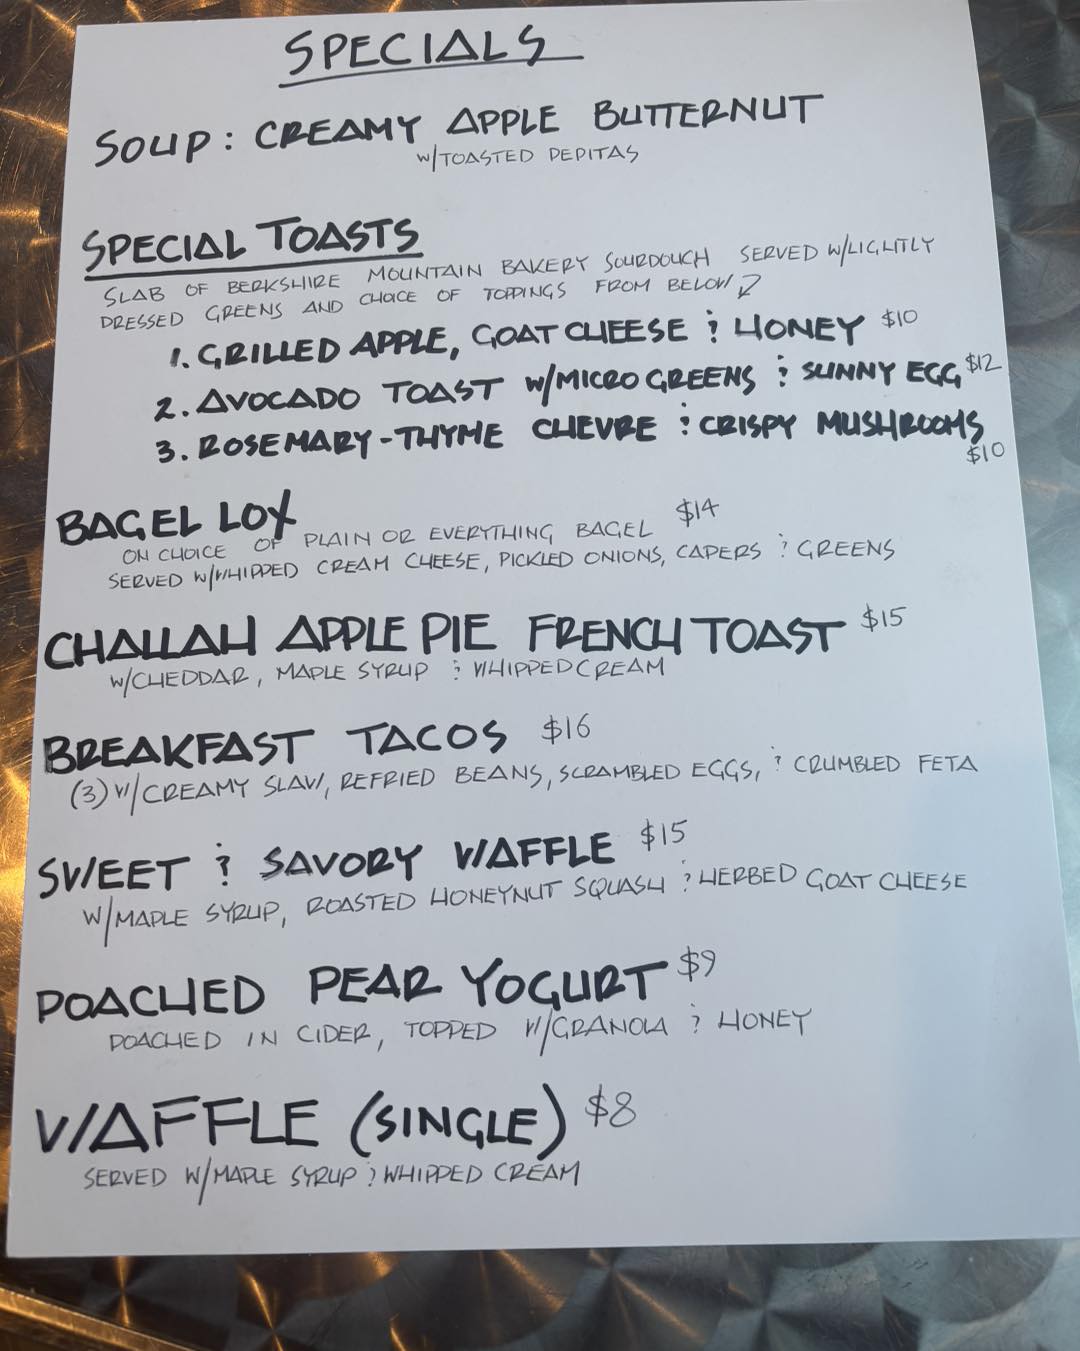 SPECIALS
SOUP: CREAMY APPLE BUTTERNUT
w/TOASTED PEPITAS
SPECIAL TOASTS
SLAB OF BERKSHIRE MOUNTAIN BAKERY SOURDOUGH SERVED w/LIGHTLY
DRESSED GREENS AND CHOICE OF TOPPINGS FROM BELOW
1. GRILLED APPLE, GOAT CHEESE & HONEY $10
2. AVOCADO TOAST w/MICRO GREENS & SUNNY EGG $12
3. ROSEMARY-THYME CHEVRE & CRISPY MUSHROOMS
$10
BAGEL LOX $14
ON CHOICE OF PLAIN OR EVERYTHING BAGEL
SERVED w/WHIPPED CREAM CHEESE, PICKLED ONIONS, CAPERS & GREENS
CHALLAH APPLE PIE FRENCH TOAST $15
w/CHEDDAR, MAPLE SYRUP & WHIPPED CREAM
BREAKFAST TACOS $16
(3) w/CREAMY SLAW, REFRIED BEANS, SCRAMBLED EGGS, & CRUMBLED FETA
SWEET & SAVORY WAFFLE $15
w/MAPLE SYRUP, ROASTED HONEYNUT SQUASH & HERBED GOAT CHEESE
POACHED PEAR YOGURT $9
POACHED IN CIDER, TOPPED w/GRANOLA & HONEY
WAFFLE (SINGLE) $8
SERVED w/MAPLE SYRUP & WHIPPED CREAM